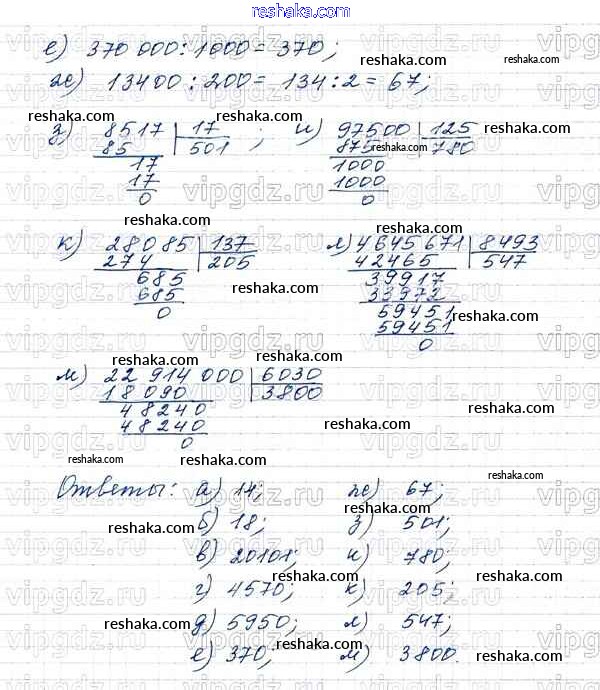 reshaka.com
е) 370 000 : 1000 = 370;
ж) 13400 : 200 = 134 : 2 = 67;
reshaka.com
з) 8517 | 17 ; и) 97500 | 125
85 501 875 780
17 1000
17 1000
0 0
reshaka.com
к) 28085 | 137 л) 4645671 | 8493
274 205 42465 547
685 39917
685 33972
0 59451
59451
0
reshaka.com
м) 22 914 000 | 6030
18 090 3800
48240
48240
0
reshaka.com
Ответы: а) 14; ж) 67;
б) 18; з) 501;
в) 20101; и) 780;
г) 4570; к) 205;
д) 5950; л) 547;
е) 370; м) 3800.
reshaka.com
vipgdz.ru